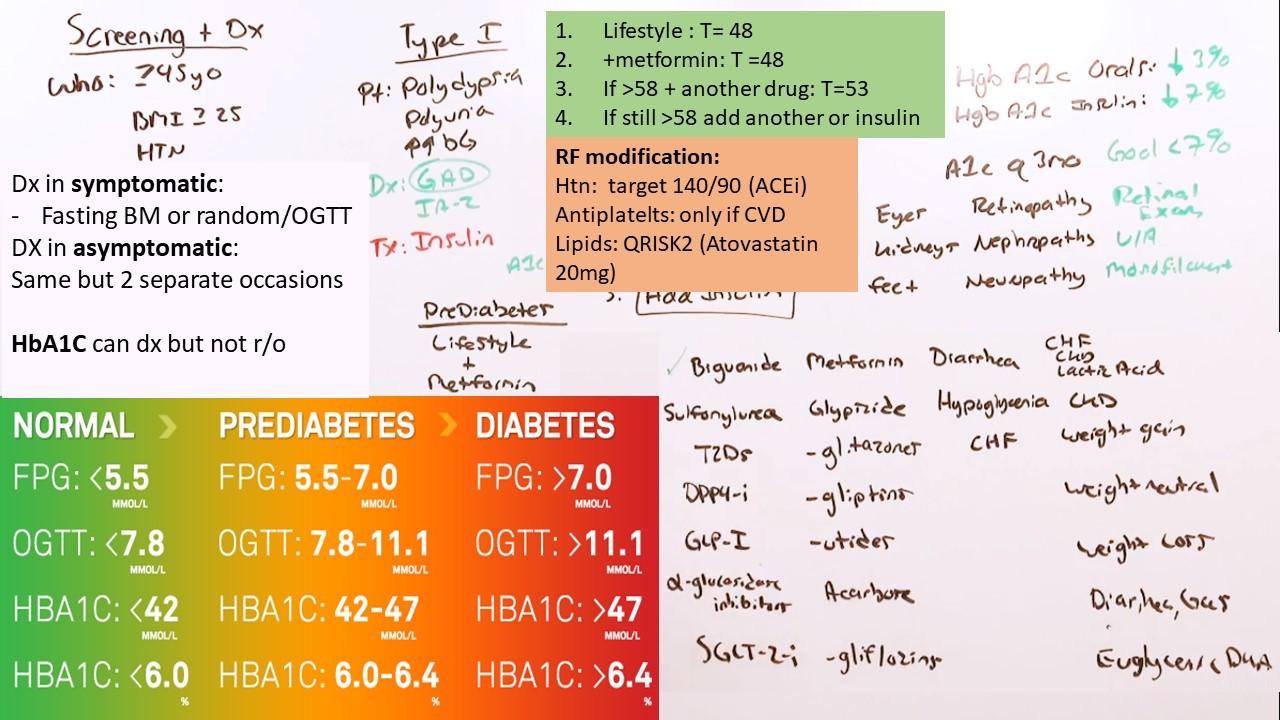 Screening + Dx
Who: ≥45yo
BMI ≥ 25
HTN
Dx in symptomatic:
- Fasting BM or random/OGTT
DX in asymptomatic:
Same but 2 separate occasions
HbA1C can dx but not r/o
Type I
Pt: Polydypsia
Polyuria
Dx: GAD
IA-2
Tx: Insulin
A1c
PreDiabetes
Lifestyle
+
Metformin
1. Lifestyle : T= 48
2. +metformin: T =48
3. If >58 + another drug: T=53
4. If still >58 add another or insulin
RF modification:
Htn: target 140/90 (ACEi)
Antiplatelts: only if CVD
Lipids: QRISK2 (Atovastatin
20mg)
3. Add Insulin
Hgb A1c Orals: ↓ 3%
Hgb A1c Insulin: ↓ 7%
A1c q 3mo Goal <7%
Eyes Retinopathy Retinal Exam
Kidneys Nephropathy U/A
Feet Neuropathy Monofilament
✓ Biguanide Metformin Diarrhea CHF
CKD
Lactic Acid
Sulfonylurea Glypizide Hypoglycemia CKD
TZDs -glitazones CHF weight gain
DPP4-i -gliptins weight neutral
GLP-I -utides weight loss
α-glucosidase
inhibitors Acarbose Diarrhea, Gas
SGLT-2-i -gliflozins Euglycemic DKA
NORMAL > PREDIABETES > DIABETES
FPG: <5.5 MMOL/L FPG: 5.5-7.0 MMOL/L FPG: >7.0 MMOL/L
OGTT: <7.8 MMOL/L OGTT: 7.8-11.1 MMOL/L OGTT: >11.1 MMOL/L
HBA1C: <42 MMOL/L HBA1C: 42-47 MMOL/L HBA1C: >47 MMOL/L
HBA1C: <6.0 % HBA1C: 6.0-6.4 % HBA1C: >6.4 %